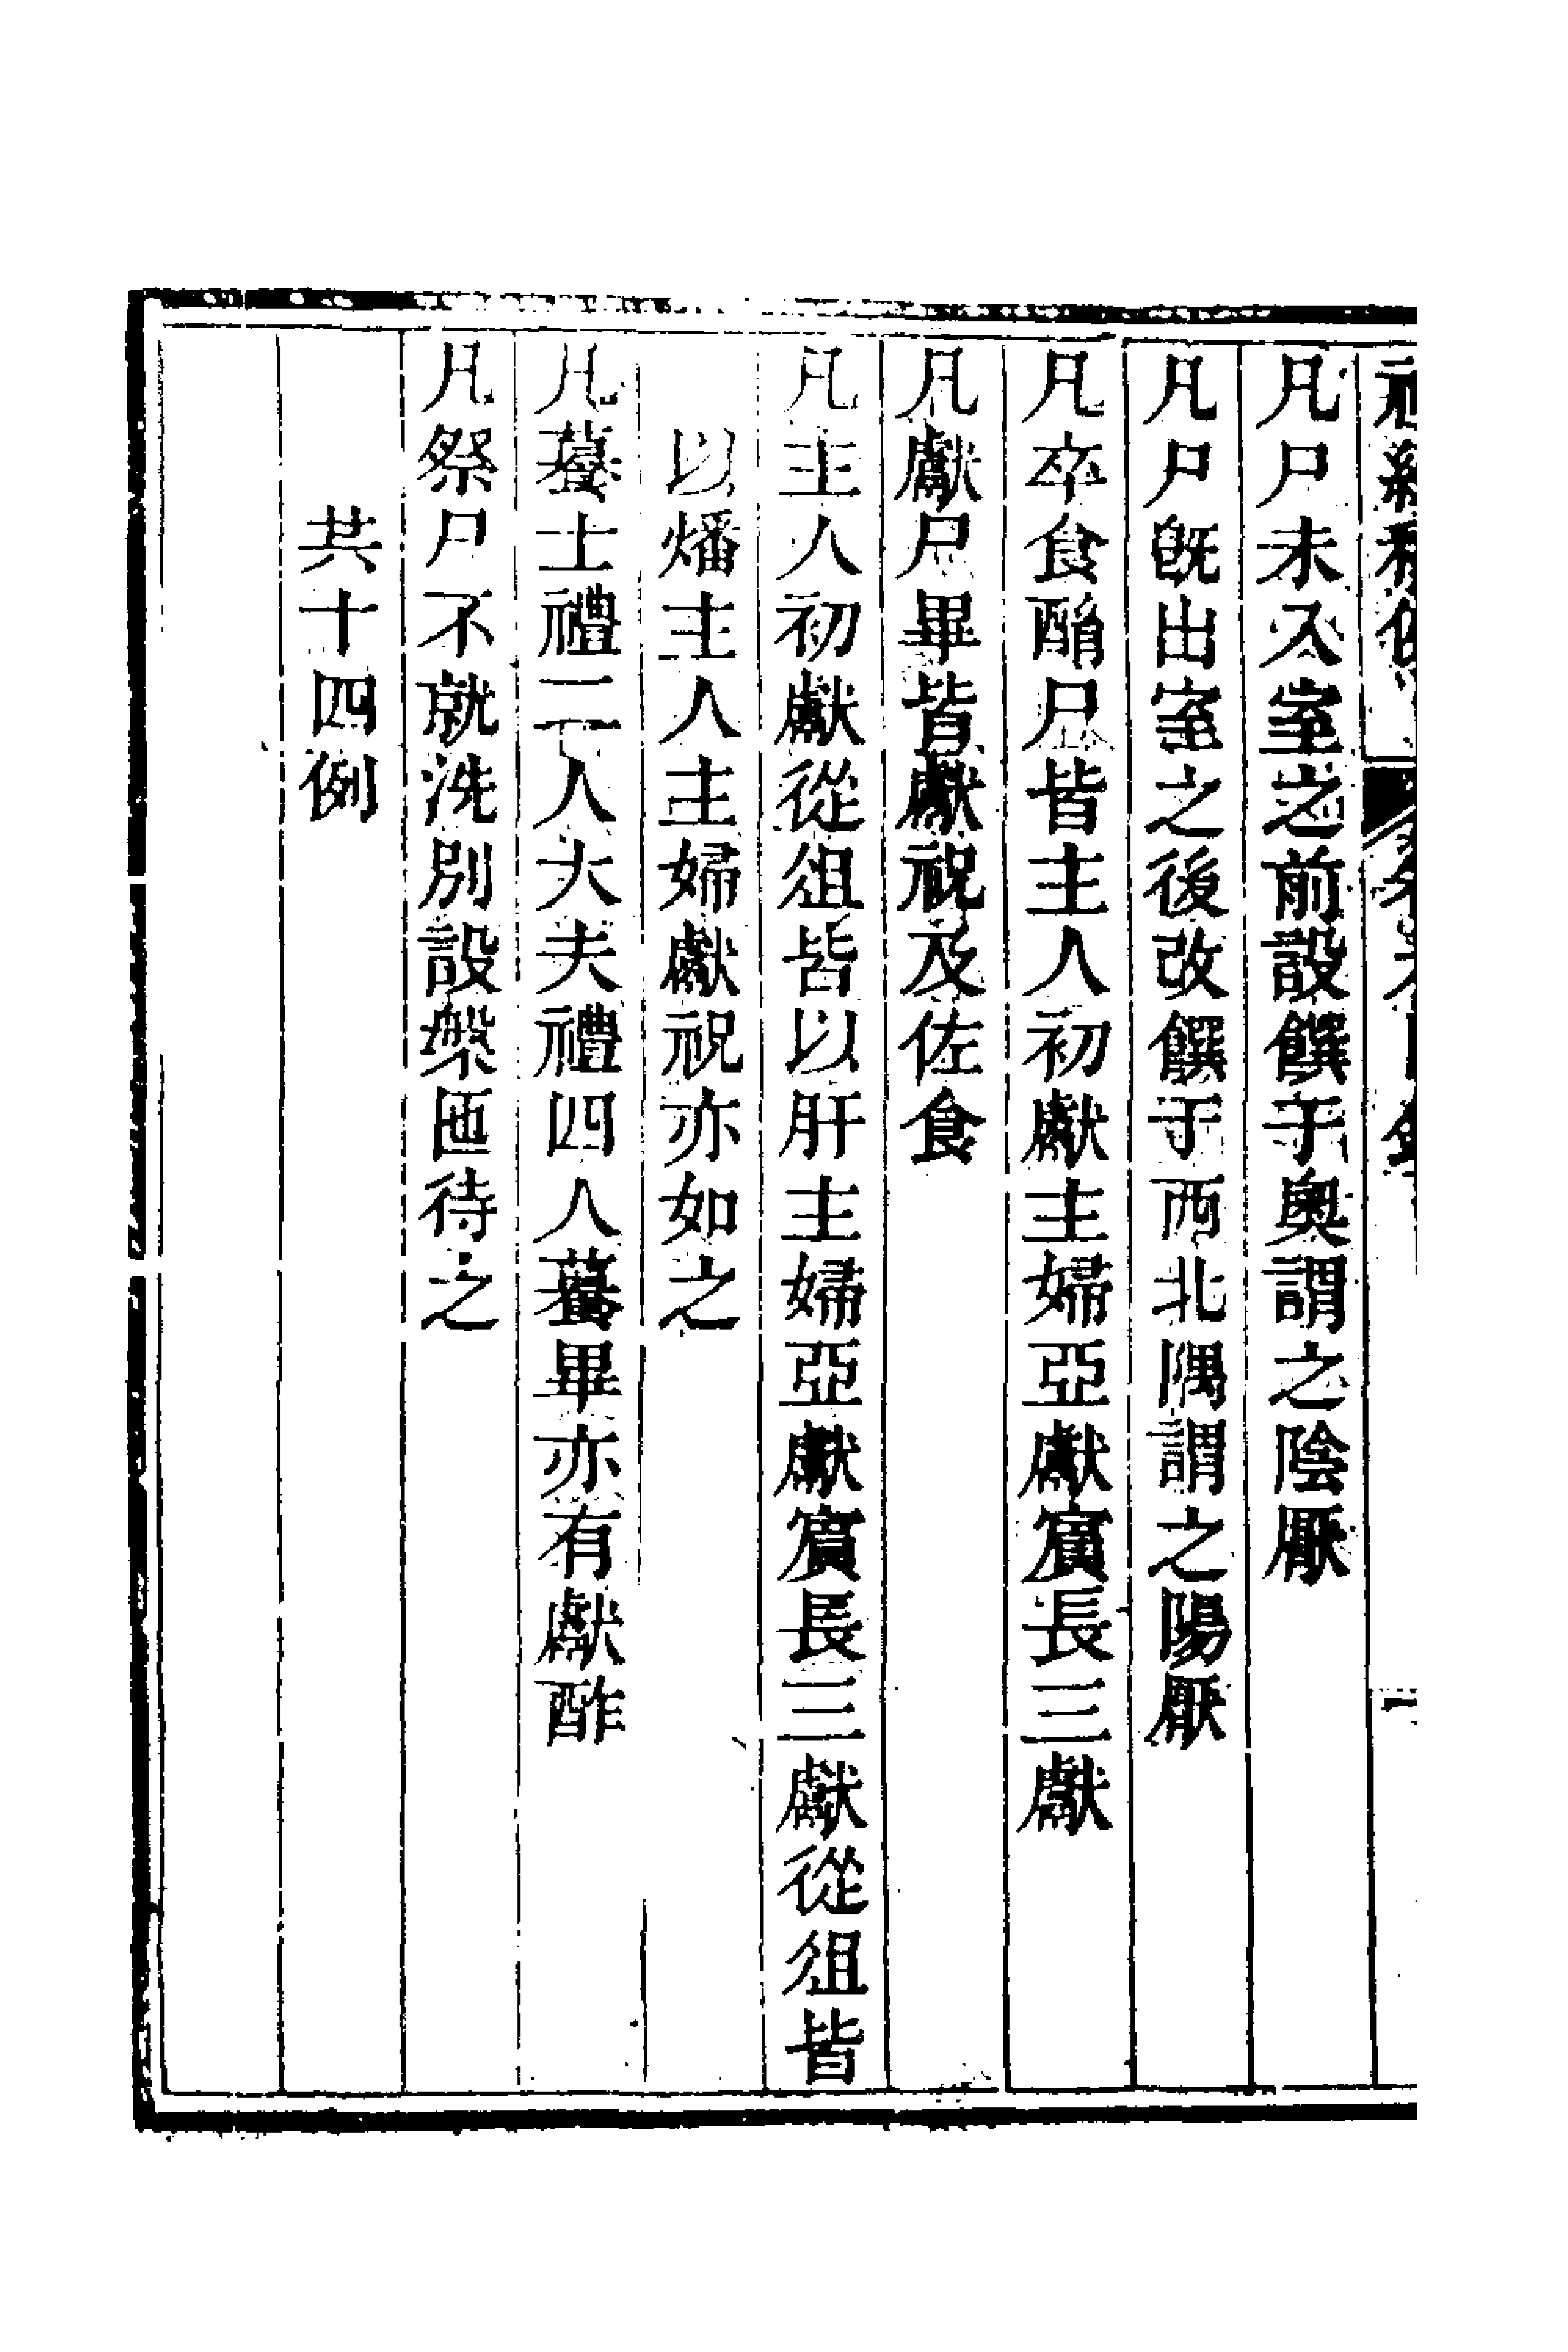 凡尸未入室之前設饌于奧謂之陰厭
凡尸旣出室之後改饌于西北隅謂之陽厭
凡卒食酳尸皆主人初獻主婦亞獻賓長三獻
凡獻尸畢皆獻祝及佐食
凡主人初獻從俎皆以肝主婦亞獻賓長三獻從俎皆
以燔主人主婦獻祝亦如之
凡䭆士禮二人大夫禮四人䭆畢亦有獻酢
凡祭尸不就洗別設槃匜待之
共十四例